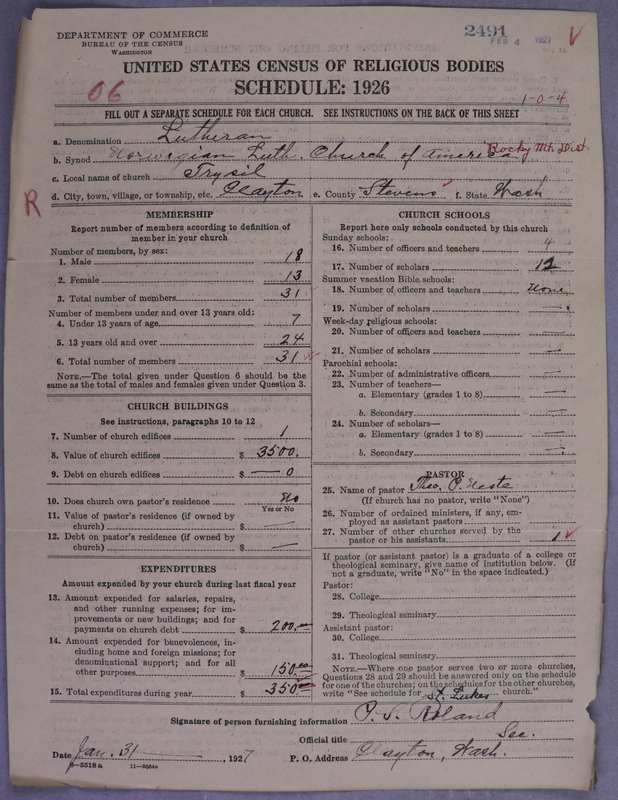 DEPARTMENT OF COMMERCE
BUREAU OF THE CENSUS
WASHINGTON
2491
FEB 4 1927
UNITED STATES CENSUS OF RELIGIOUS BODIES
SCHEDULE: 1926
06
1-0-4
FILL OUT A SEPARATE SCHEDULE FOR EACH CHURCH. SEE INSTRUCTIONS ON THE BACK OF THIS SHEET
a. Denomination Lutheran
b. Synod Norwegian Luth. Church of America Rocky Mt. Dist.
c. Local name of church Trysil
d. City, town, village, or township, etc. Clayton e. County Stevens f. State Wash
R
MEMBERSHIP
Report number of members according to definition of
member in your church
Number of members, by sex:
1. Male 18
2. Female 13
3. Total number of members 31
Number of members under and over 13 years old:
4. Under 13 years of age 7
5. 13 years old and over 24
6. Total number of members 31
NOTE.—The total given under Question 6 should be
same as the total of males and females given under Question 3.
CHURCH BUILDINGS
See instructions, paragraphs 10 to 12
7. Number of church edifices 1
8. Value of church edifices $ 3500.
9. Debt on church edifices $ — 0
10. Does church own pastor's residence No
Yes or No
11. Value of pastor's residence (if owned by
church) $ —
12. Debt on pastor's residence (if owned by
church) $ —
EXPENDITURES
Amount expended by your church during last fiscal year
13. Amount expended for salaries, repairs,
and other running expenses; for im-
provements or new buildings; and for
payments on church debt $ 200.00
14. Amount expended for benevolences, in-
cluding home and foreign missions; for
denominational support; and for all
other purposes $ 150.00
15. Total expenditures during year $ 350.00
CHURCH SCHOOLS
Report here only schools conducted by this church
Sunday schools:
16. Number of officers and teachers 4
17. Number of scholars 12
Summer vacation Bible schools:
18. Number of officers and teachers None
19. Number of scholars —
Week-day religious schools:
20. Number of officers and teachers —
21. Number of scholars —
Parochial schools:
22. Number of administrative officers —
23. Number of teachers—
a. Elementary (grades 1 to 8) —
b. Secondary —
24. Number of scholars—
a. Elementary (grades 1 to 8) —
b. Secondary —
PASTOR
25. Name of pastor Theo. P.
(If church has no pastor, write "None")
26. Number of ordained ministers, if any, em-
ployed as assistant pastors
27. Number of other churches served by the
pastor or his assistants 1
If pastor (or assistant pastor) is a graduate of a college or
theological seminary, give name of institution below. (If
not a graduate, write "No" in the space indicated.)
Pastor:
28. College
29. Theological seminary
Assistant pastor:
30. College
31. Theological seminary
NOTE.—Where one pastor serves two or more churches,
Questions 28 and 29 should be answered only on the schedule
for one of the churches; on the schedules for the other churches,
write "See schedule for St. Lukes church."
Signature of person furnishing information Roland
Official title Sec.
Date Jan. 31 — , 1927 P. O. Address Clayton, Wash.
8—5518 a 11—9254